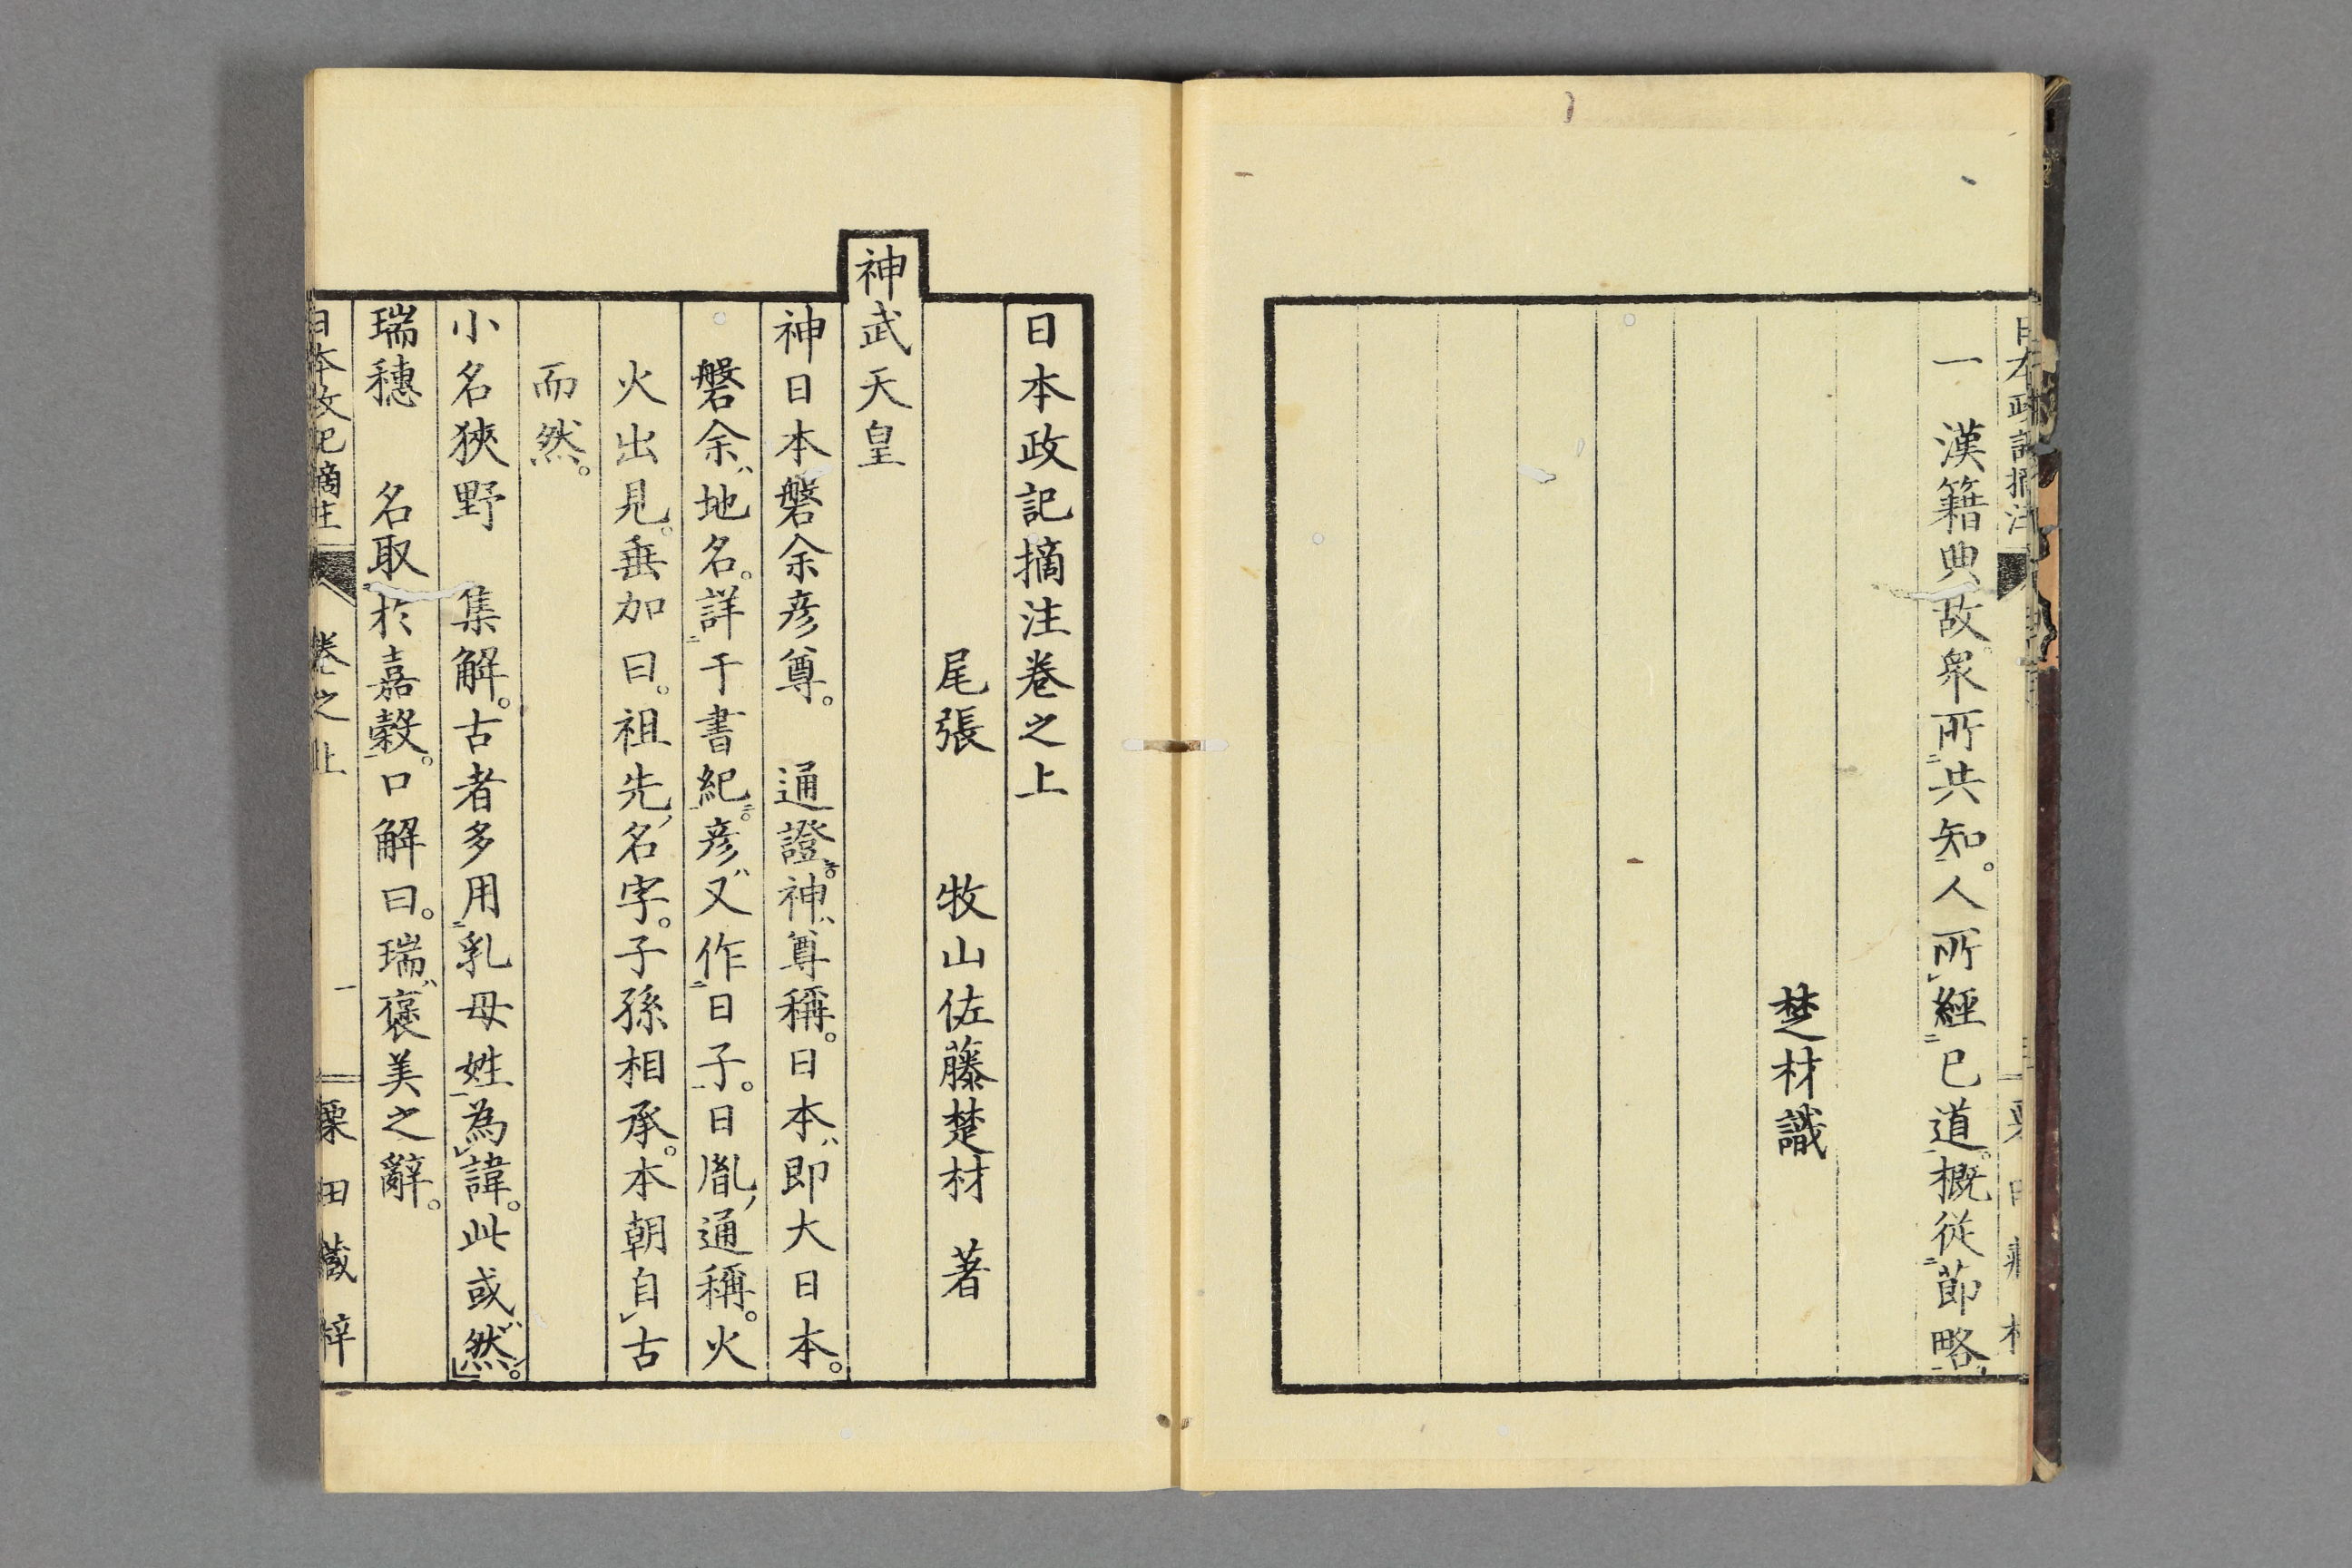 一漢籍典故衆所共知。人所經已道。概從節略、
楚材識
日本政記摘注卷之上
尾張　牧山佐藤楚材　著
神武天皇
神日本磐余彦尊。　通證。神ハ尊稱。日本ハ即大日本。
磐余ハ地名。詳ニ于書紀ニ。彦ハ又作ニ日子一。日胤ノ通稱。火
火出見。垂加曰。祖先ノ名字。子孫相承。本朝自レ古
而然。
小名狹野　集解。古者多用ニ乳母姓一為レ諱。此或ハ然。」
瑞穗　名取ニ於嘉穀一。口解曰。瑞ハ褒美之辭。
日本政記摘注　卷之上　一　栗田藏梓